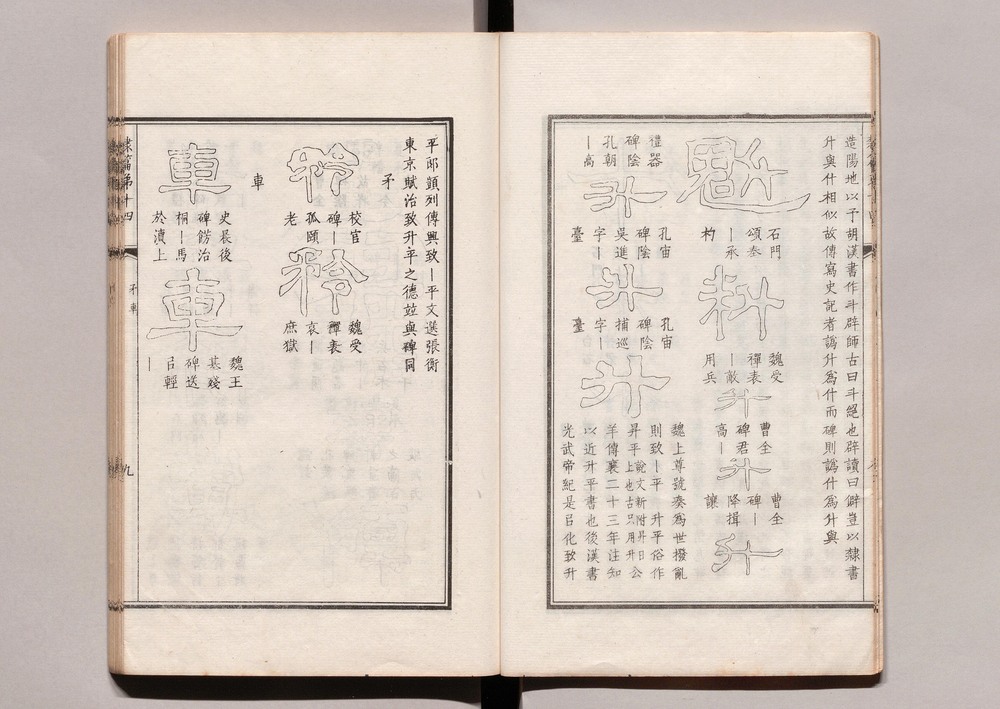 造陽地以予胡漢書作斗辟師古曰斗絕也辟讀曰僻豈以隸書
升與什相似故傳寫史記者譌升爲什而碑則譌什爲升與
魁
石門
頌叅
丨承
杓
料
魏受
禪表
丨敵
用兵
升
曹全
碑君
高丨
升
曹全
碑丨
降揖
讓
升
禮器
碑陰
孔朝
丨高
升
孔宙
碑陰
吳進
字丨
臺
升
孔宙
碑陰
捕巡
字丨
臺
升
魏上尊號奏爲世撥亂
則致丨平 升平俗作
昇平說文新附昇日上也古只用升公
羊傳襄二十三年注知
以近升平書也後漢書
光武帝紀是㠯化致升
平郎顗列傳興致丨平文選張衡
東京賦治致升平之德竝與碑同
矛
矜
校官
碑丨
孤頤
老
矜
魏受
禪表
哀丨
庶獄
車
車
史晨後
碑餝治
桐丨馬
於瀆上
車
魏王
基殘
碑送
㠯輕
丨
隸篇第十四
矛車
九